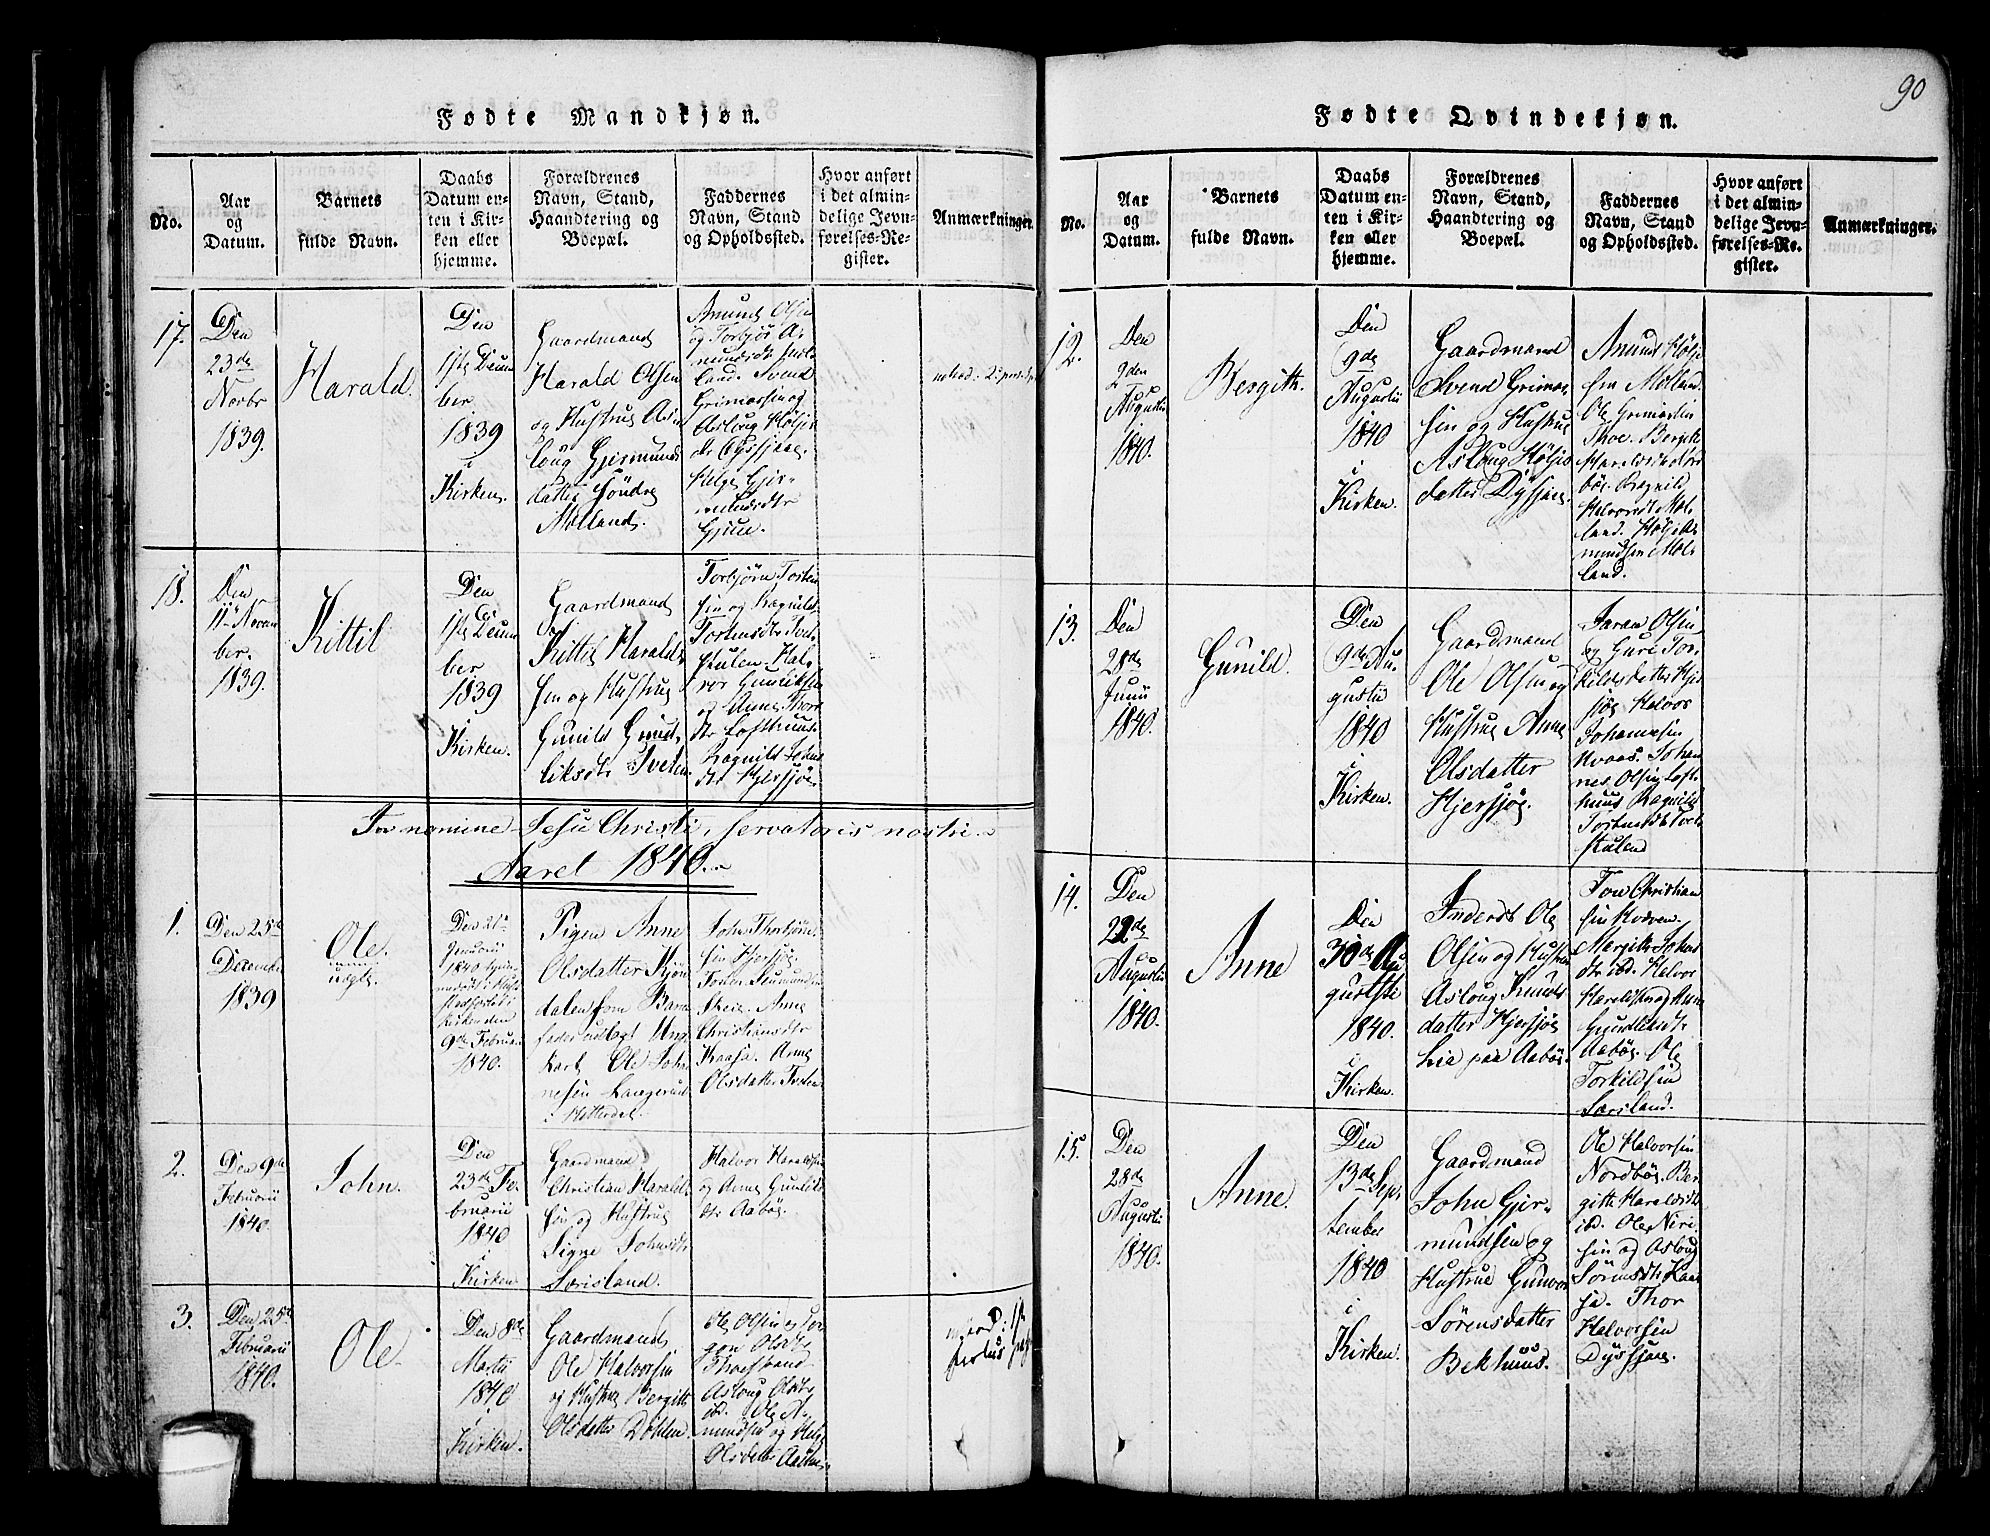 90
Fødte Mandkjøn.
No.
Aar
og
Datum.
Barnets
fulde Navn.
Daabs
Datum en-
ten i Kir-
ken eller
hjemme.
Forældrenes
Navn, Stand,
Haandtering og
Boepæl.
Faddernes
Navn, Stand
og Opholdssted.
Hvor anført
i det almin-
delige Jevn-
førelses-Re-
gister.
Anmærkninger.
17.
Den
23de
Novbr
1839.
Harald.
Den
1ste Decem
ber
1839
i
Kirken.
Gaardmand
Harald Olsen
og Hustrue As
loug Gjermunds
datter Söndre
Mælland.
Anund Olsen
og Torbjör A-
mundsdtr
land. Svend
Grimarsen og
Asloug Höljes
dtr Dyssjaae.
Helge Gjer-
mundsdtr
Gjüe.
18.
Den
11te Novem
ber.
1839.
Kittil
Den
1ste Decem
ber
1839
i
Kirken.
Gaardmand
Kittil Harald-
sen og Hustrue
Gunild Gund-
liksdtr Sveten
Torbjörn Tosten
sen og Ragnild
Tostensdtr Tvet-
stulen. Hal-
vor Gunliksen
og Anne Thore
dtr Lofthuus.
Ragnild
dtr Hjersjöe.
In nomine Jesu Christi, servatoris nostri.
Aaret 1840.
1.
Den 25de
Decembr
1839
Ole.
uægte.
Den 21de
Januarii
1840
Kirken den
9de Februar
1840.
Pigen Anne
Olsdatter Kjön
dalen som Barne
fader udlagt Ung
karl Ole Joha
nesen Langerud
i Hitterdal.
John Thorbjörn
sen Hjersjöe.
Skeie. Anne
Christiansdtr
Kaasa. Anne
Olsdatter Tveten
2.
Den 9de
Februarii
1840
John.
Den
23de Fe-
bruarii
1840
i
Kirken
Gaardmand
Christian Harald-
sen og Hustrue
Signe Johnsdtr
Sørisland.
Halvor Haraldsen
og Anne Gunliks
dtr Aaböe.
3.
Den 25de
Februarii
1840.
Ole.
Den 8de
Martii
1840
i
Kirken.
Gaardmand
Ole Halvorsen
og Hustrue Bergitt
Olsdatter Dahlen.
Ole Olsen og Jor
gon Olsdtr
Thoestrand.
Asloug Olsdtr
ibd. Ole A-
mundsen og Helge
Olsdatter
Fødte Qvindekjøn.
No.
Aar
og
Datum.
Barnets
fulde Navn.
Daabs
Datum en-
ten i Kir-
ken eller
hjemme.
Forældrenes
Navn, Stand,
Haandtering og
Boepæl.
Faddernes
Navn, Stand
og Opholdssted.
Hvor anført
i det almin-
delige Jevn-
førelses-Re-
gister.
Anmærkninger.
12.
Den
2den
Augustii
1840.
Bergith.
Den
9de
Augustii
1840
i
Kirken.
Gaardmand
Svend Grimar-
sen og Hustrue
Asloug Höljes
datter Dyssjaae.
Anund Hölje
sen Mælland.
Ole Grimarsen
Thoe. Bergith
böe. Ragnild
Halvorsdt Mæl-
land. Hölje A-
mundsen Mæl-
land.
13.
Den
28de
Junii
1840.
Gunild.
Den
9de Au-
gustii
1840
i
Kirken.
Gaardmand
Ole Olsen og
Hustrue Anne
Olsdatter
Hjersjöe.
Saran Olsen
og Guri Tor-
kildsdatter Hjer
sjöe Halvor
Johannesen
Hvaas. Johan
nes Olsen Loft-
huus Ragnild
Tostensdtr Tvet-
stulen
14.
Den
22de
Augustii
1840.
Anne
Den
30de Au-
gustii
1840.
i
Kirken.
Inderst Ole
Olsen og Hustrue
Asloug Knuds-
datter Hjersjöe
Lia paa Aaböe.
Jon Christian
sen Kodven.
Mergith Johns
dtr ibd. Halvor
Haraldsen og Anne
Gundliksdtr
Aaböe. Ole
Torkildsen
Sørisland.
15.
Den
28de
Augustii
1840.
Anne.
Den
13de Sep-
tember
1840
i
Kirken.
Gaardmand
John Gjer-
mundsen og
Hustrue Gunvor
Sörensdatter
Bekhuus.
Ole Halvorsen
Nordböe. Ber-
gitt Haraldsdtr
ibd. Ole Niri-
sen og Asloug
Sörensdtr Kaa-
sa. Thor
Halvorsen
Dyssjaae.